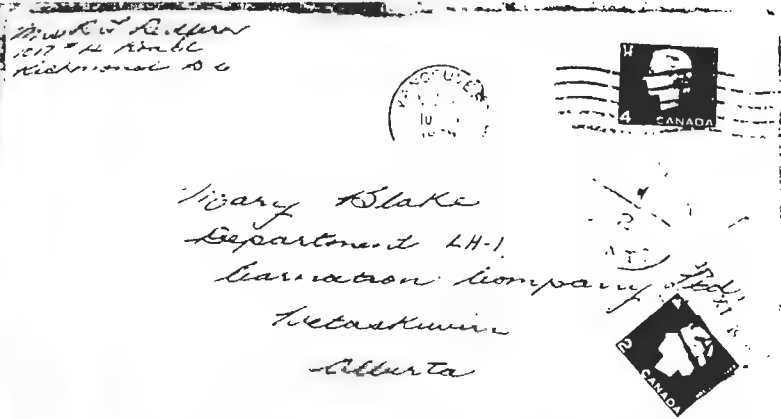 Richmond B C
VANCOUVER
10
4 CANADA
Mary Blake
Department LH-1
Carnation Company Ltd.
Wetaskiwin
Alberta
2 CANADA